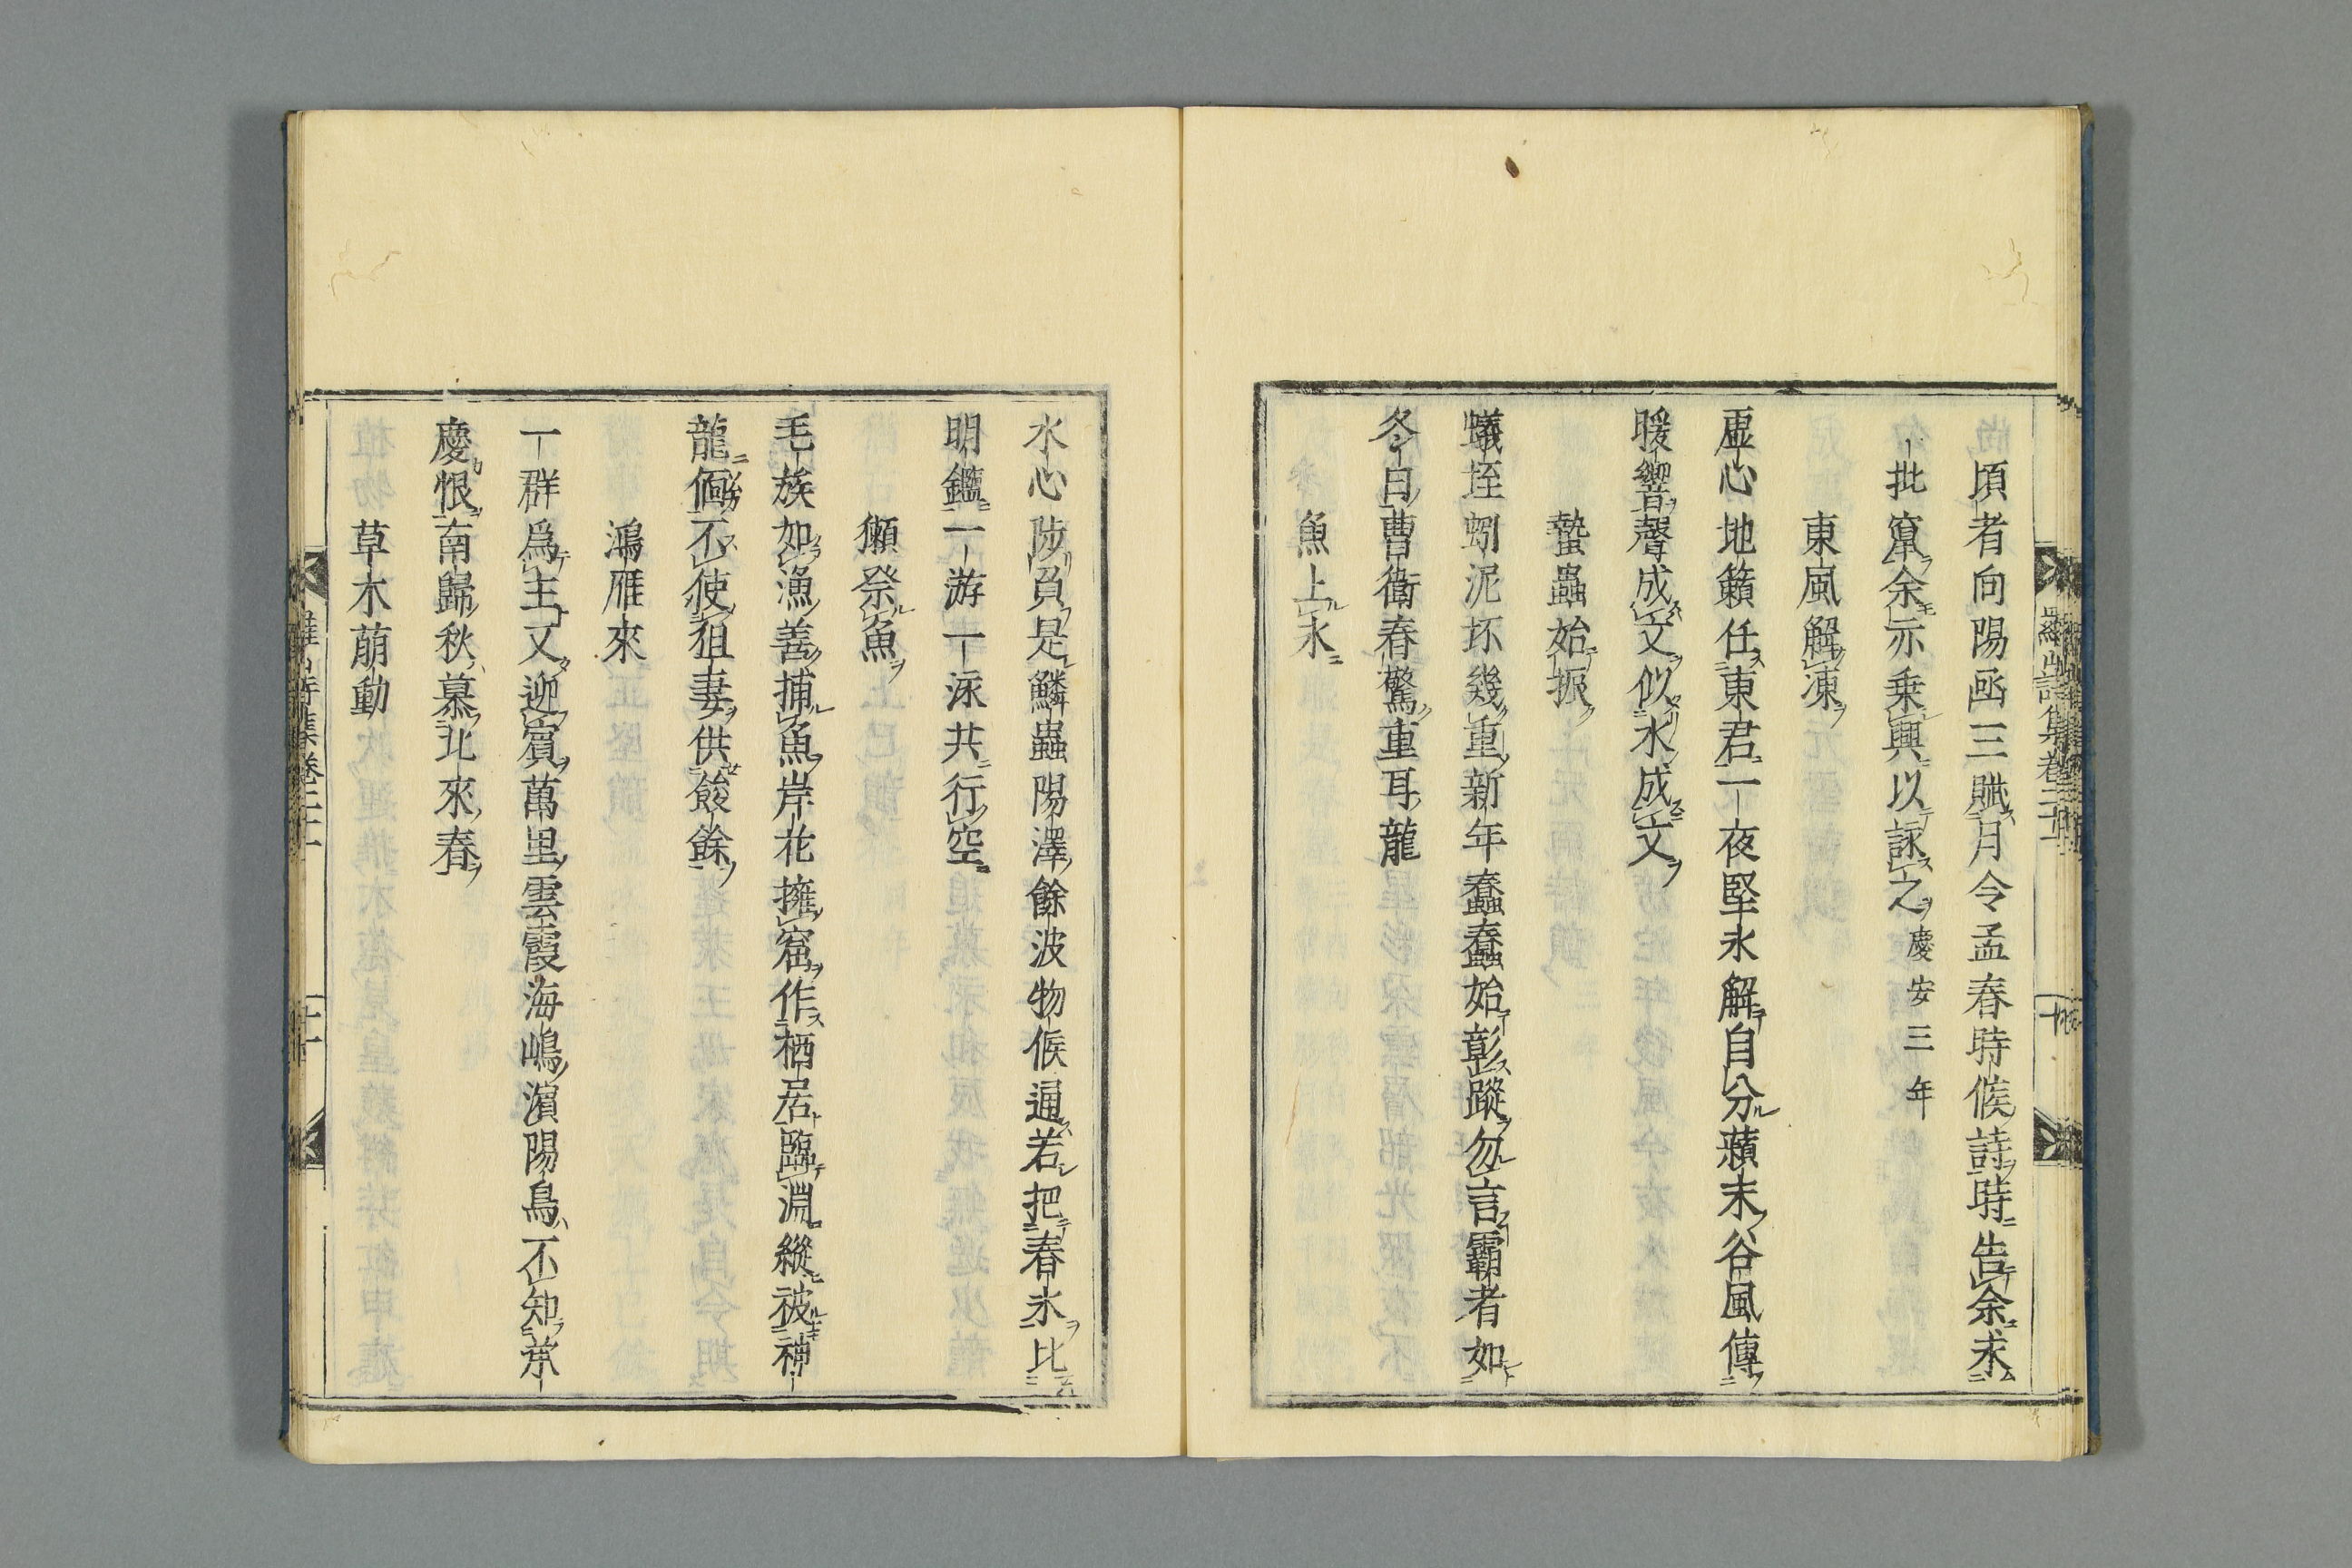 頃者向陽函三賦月令孟春時候詩時告余求
一批竄余亦乗興以詠之慶安三年
東風解凍
虛心地籟任東君一夜堅氷解自分蘋末谷風傳
暖響聲成文似氷成文
蟄蟲始振
蟻垤蚓泥坏幾重新年蠢蠢始彰蹤勿言霸者如
冬日曹衞春驚重耳龍
魚上氷
水心陟負是鱗蟲陽澤餘波物候通若把春氷比
明鑑一游一泳共行空
獺祭魚
毛族如漁善捕魚岸花擁窟作栖居臨淵縱被神
龍個不使狙妻供餕餘
鴻雁來
一群爲主又迎賓萬里雲霞海嶋濵陽鳥不知京
慶恨南歸秋慕北來春
草木萠動